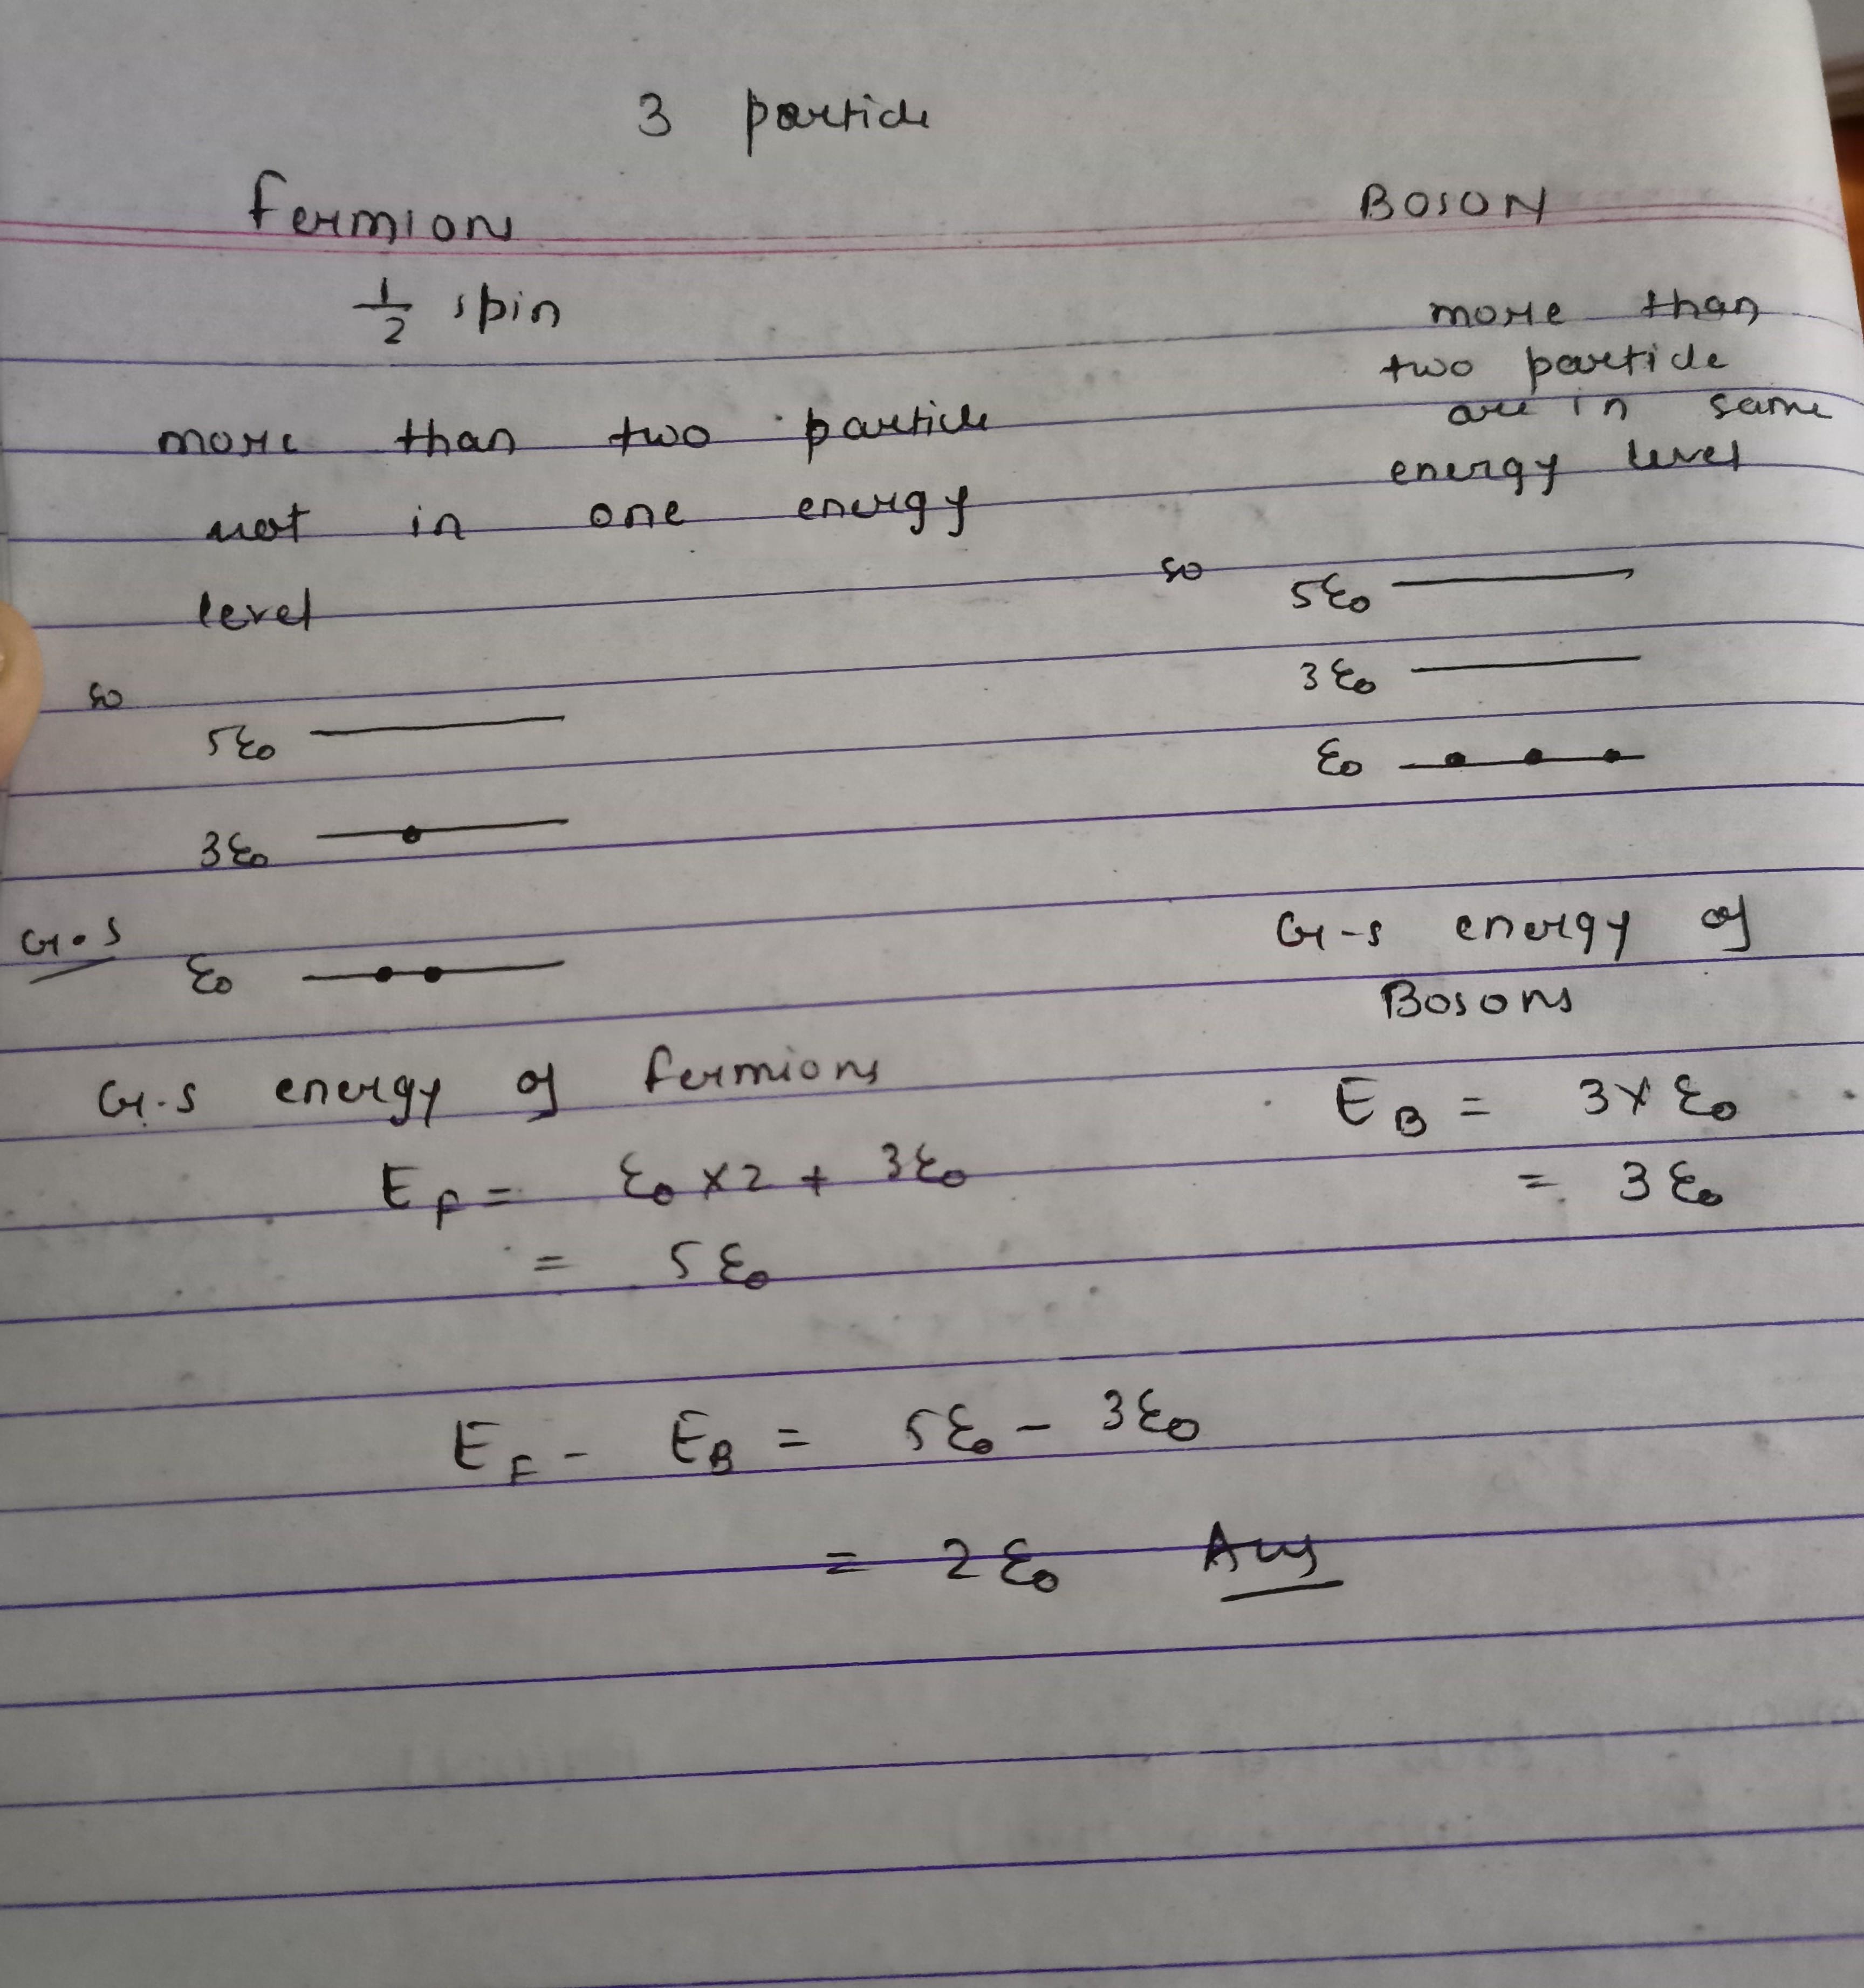 3 particle
Fermions
1/2 spin
more than two particle
not in one energy
level
so
5ε₀
3ε₀
G.S
ε₀
G.S energy of fermions
E_F = ε₀ × 2 + 3ε₀
= 5ε₀
BOSON
more than
two particle
are in same
energy level
so
5ε₀
3ε₀
ε₀
G-s energy of
Bosons
E_B = 3 × ε₀
= 3ε₀
E_F - E_B = 5ε₀ - 3ε₀
= 2ε₀ Ans